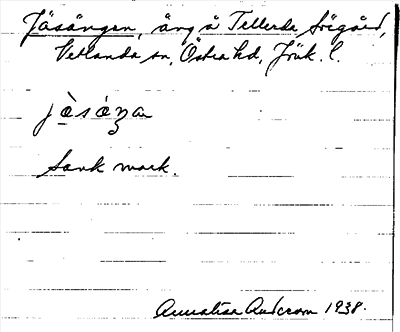 Jäsängen, äng å Tellerda Sörgård,
Vetlanda sn, Östra hd, Jönk. l.
jä̀sáŋa
Sank mark.
Annalisa Anderson 1938.